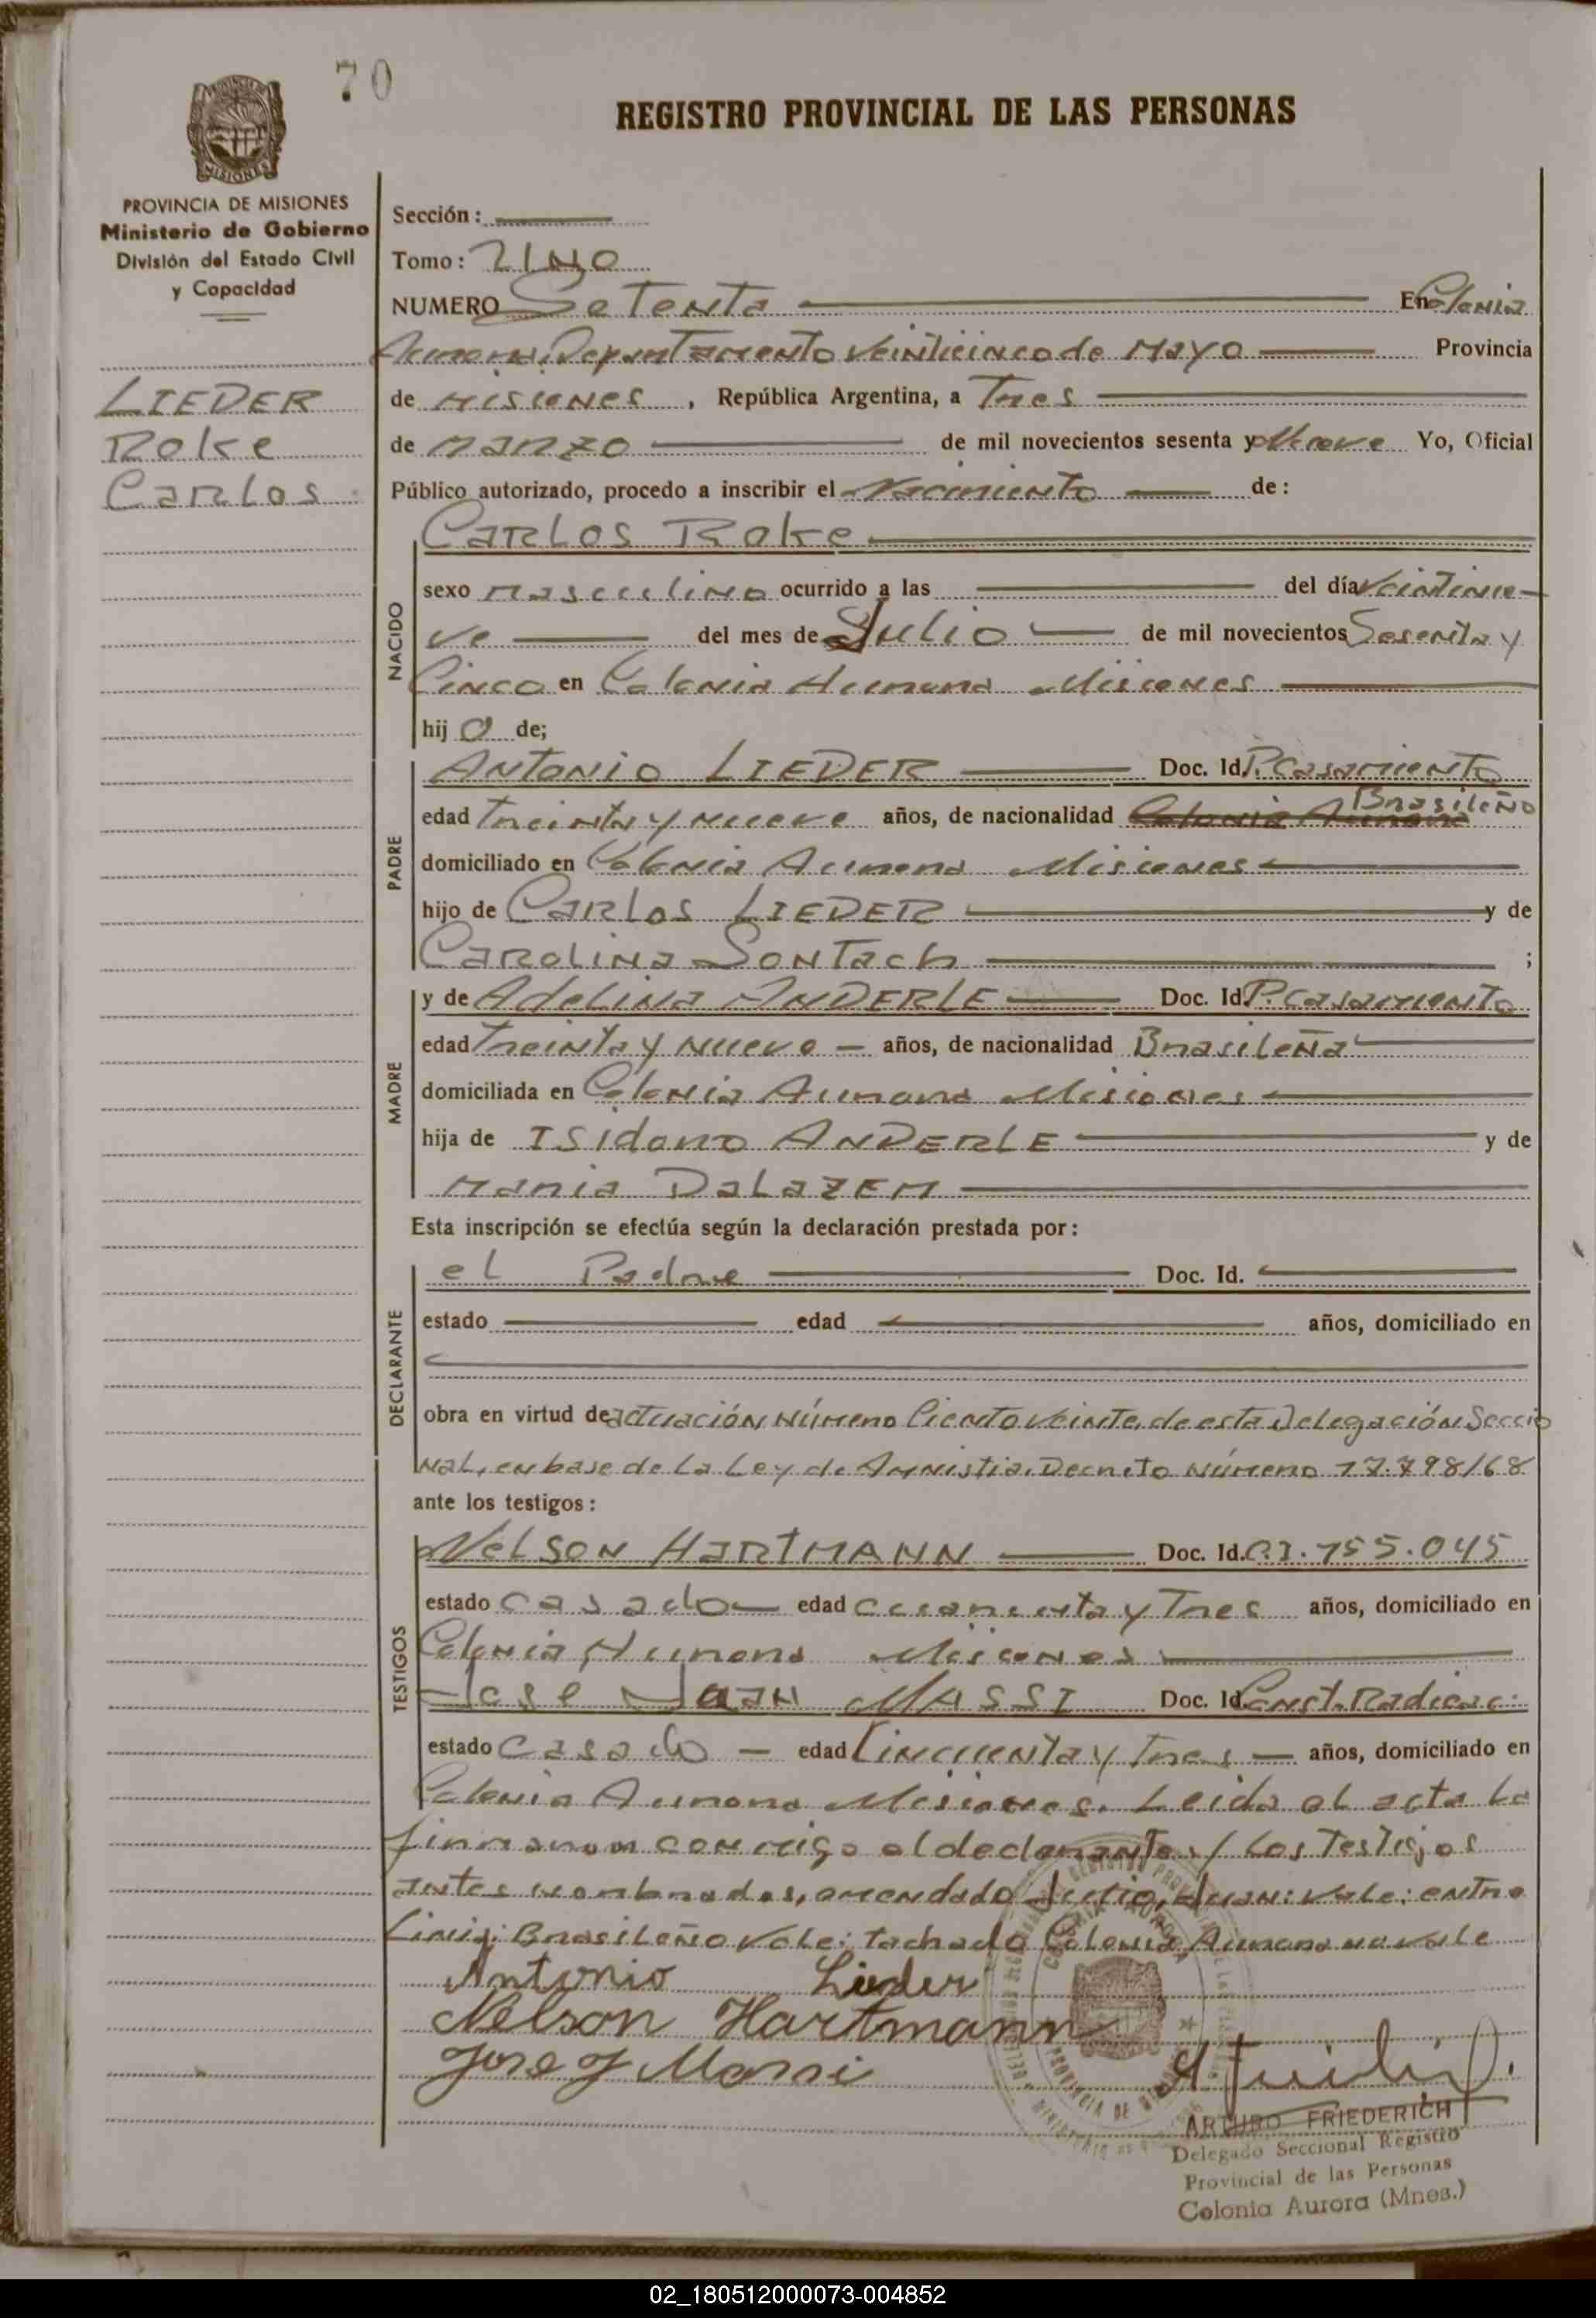 70
REGISTRO PROVINCIAL DE LAS PERSONAS
MISIONES
PROVINCIA DE MISIONES
Ministerio de Gobierno
División del Estado Civil
y Capacidad
LIEDER
Roke
Carlos
Sección:
Tomo: UNO
NUMERO Setenta En Colonia
Aurora, Departamento Veinticinco de Mayo Provincia
de Misiones, República Argentina, a Tres
de Marzo de mil novecientos sesenta y Nueve Yo, Oficial
Público autorizado, procedo a inscribir el Nacimiento de:
NACIDO
Carlos Roke
sexo Masculino ocurrido a las del día Veintinue-
ve del mes de Julio de mil novecientos Sesenta y
Cinco en Colonia Aurora Misiones
hijo de;
PADRE
Antonio LIEDER Doc. Id. P. Casamiento
edad Treinta y Nueve años, de nacionalidad Colonia Aurora Brasileño
domiciliado en Colonia Aurora Misiones
hijo de Carlos LIEDER y de
Carolina Sontach ;
MADRE
y de Adelina ANDERLE Doc. Id. P. Casamiento
edad Treinta y Nueve años, de nacionalidad Brasileña
domiciliada en Colonia Aurora Misiones
hija de Isidoro ANDERLE y de
Maria Dalazem
Esta inscripción se efectúa según la declaración prestada por:
DECLARANTE
el Padre Doc. Id.
estado edad años, domiciliado en
obra en virtud de actuación Número Ciento Veinte, de esta Delegación Seccio
nal, en base de la Ley de Amnistia, Decreto Número 17.798/68
ante los testigos:
TESTIGOS
Nelson HARTMANN Doc. Id. C.I. 155.045
estado Casado edad cuarenta y Tres años, domiciliado en
Colonia Aurora Misiones
Jose Juan MASSI Doc. Id. Const. Radicac:
estado Casado edad Cincuenta y Tres años, domiciliado en
Colonia Aurora Misiones. Leida el acta la
firmaron conmigo el declarante y los Testigos
antes nombrados, enmendado Julio, Juan: Vale: entre
Linia: Brasileño Vale: tachado Colonia Aurora no vale
Antonio Lieder
Nelson Hartmann
Jose J Massi
ARTURO FRIEDERICH
Delegado Seccional Registro
Provincial de las Personas
Colonia Aurora (Mnes.)
02_180512000073-004852